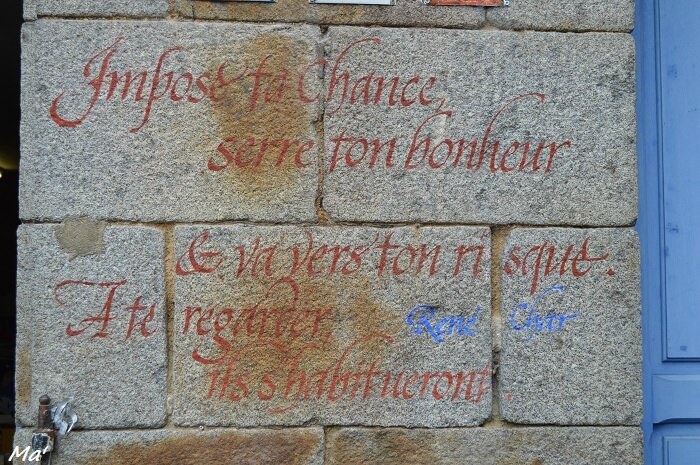 Impose ta Chance,
serre ton bonheur
& va vers ton risque.
A te regarder,
René Char
ils s'habitueront.
Ma'